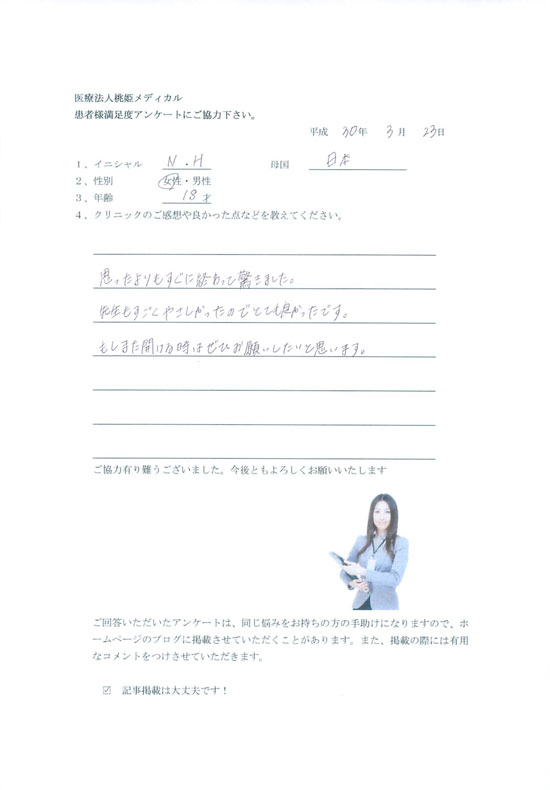 医療法人桃姫メディカル
患者様満足度アンケートにご協力下さい。
平成 30年 3月 23日
1、イニシャル N.H 母国 日本
2、性別 女性・男性
3、年齢 18才
4、クリニックのご感想や良かった点などを教えてください。
思ったよりもすぐに終わって驚きました。
先生もすごくやさしかったのでとても良かったです。
もしまた開ける時はぜひお願いしたいと思います。
ご協力有り難うございました。今後ともよろしくお願いいたします
ご回答いただいたアンケートは、同じ悩みをお持ちの方の手助けになりますので、ホ
ームページのブログに掲載させていただくことがあります。また、掲載の際には有用
なコメントをつけさせていただきます。
☑ 記事掲載は大丈夫です！